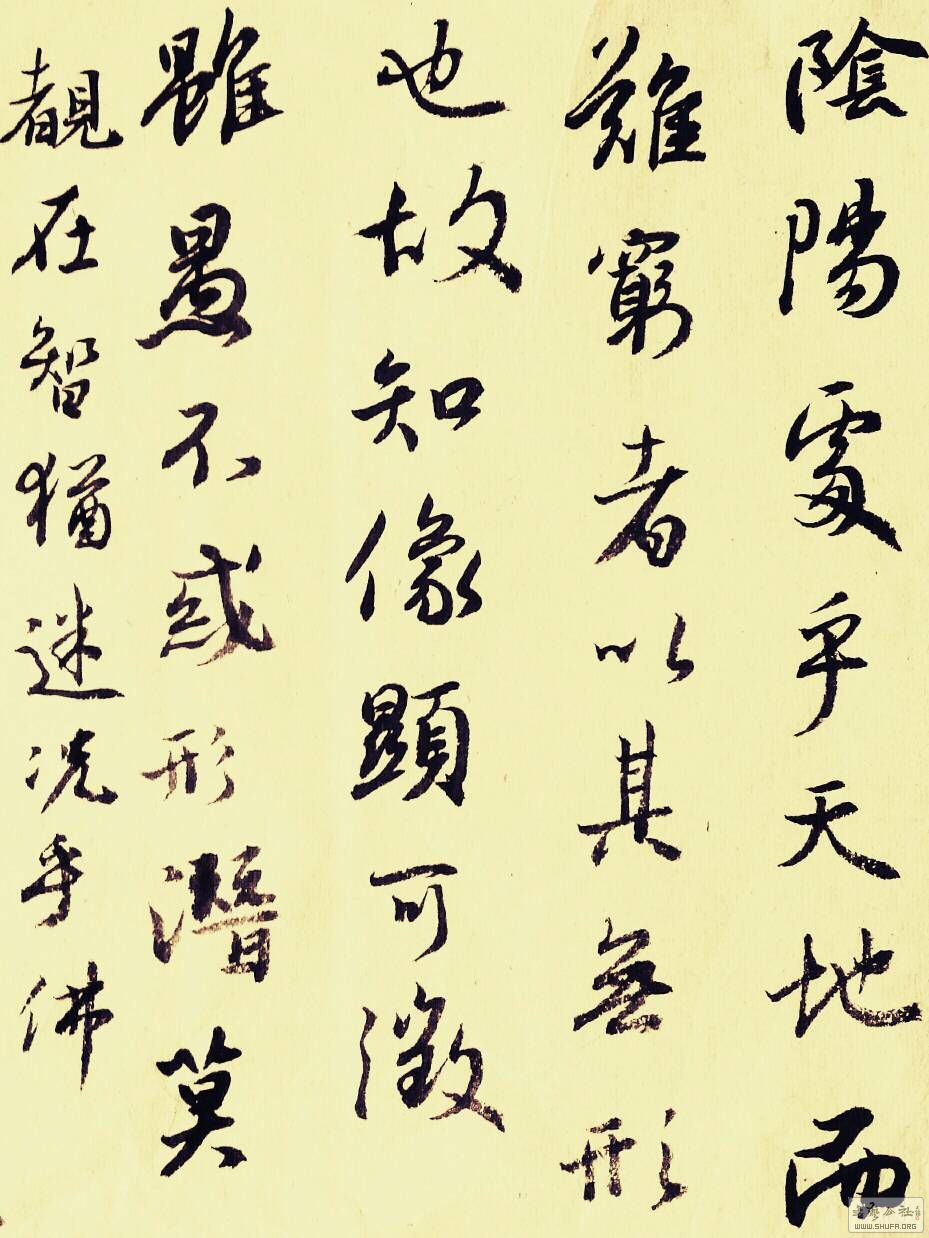 陰陽處乎天地而
難窮者以其無形
也故知像顯可徵
雖愚不惑形潛莫
覩在智猶迷況乎佛
WWW.SHUFA.ORG